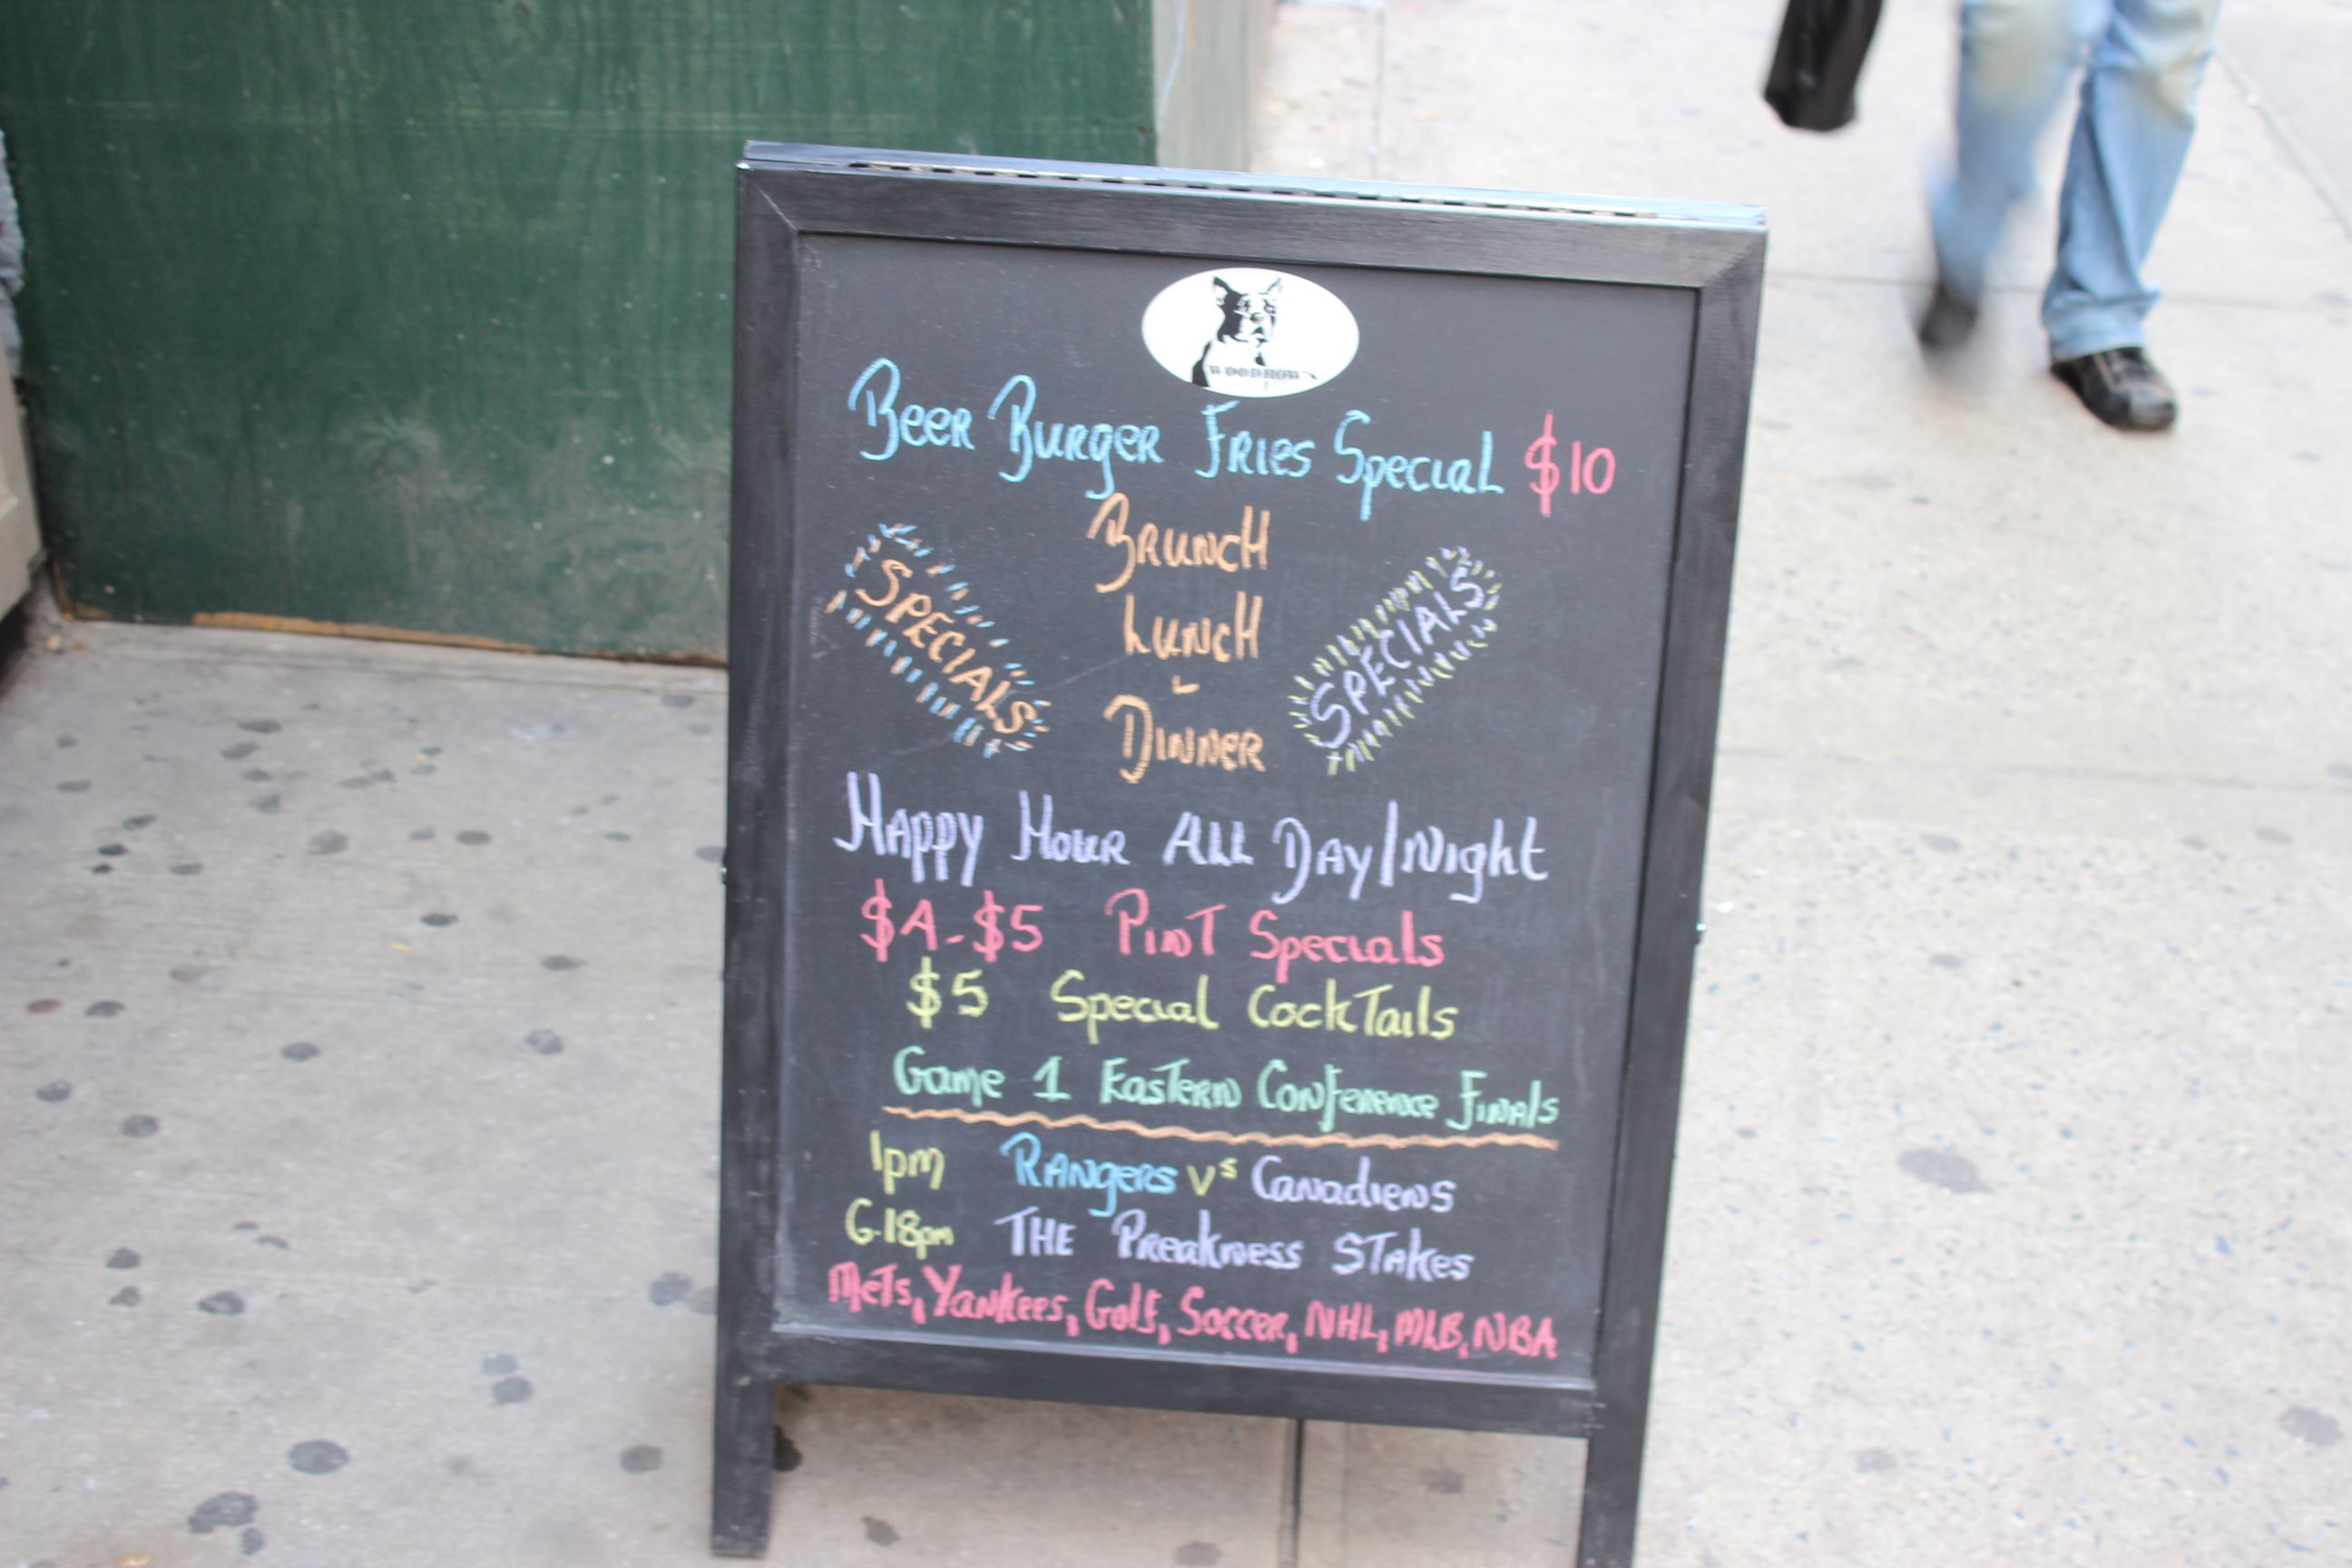 WOODROW'S
Beer Burger Fries Special $10
Brunch
Lunch
Dinner
SPECIALS
SPECIALS
Happy Hour All Day/Night
$4-$5 Pint Specials
$5 Special Cocktails
Game 1 Eastern Conference Finals
1pm Rangers vs Canadiens
6.18pm THE Preakness Stakes
Mets, Yankees, Golf, Soccer, NHL, MLB, NBA